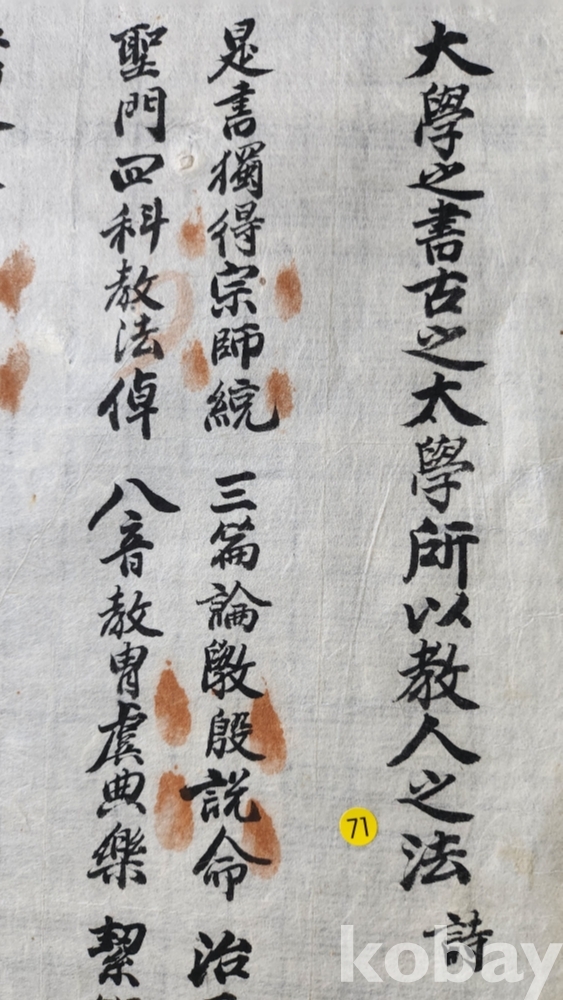 大學之書古之太學所以教人之法 詩
是書獨得宗師綂 三篇論斆殷説命 治
聖門四科教法倬 八音教胄虞典樂 絜
71
kobay